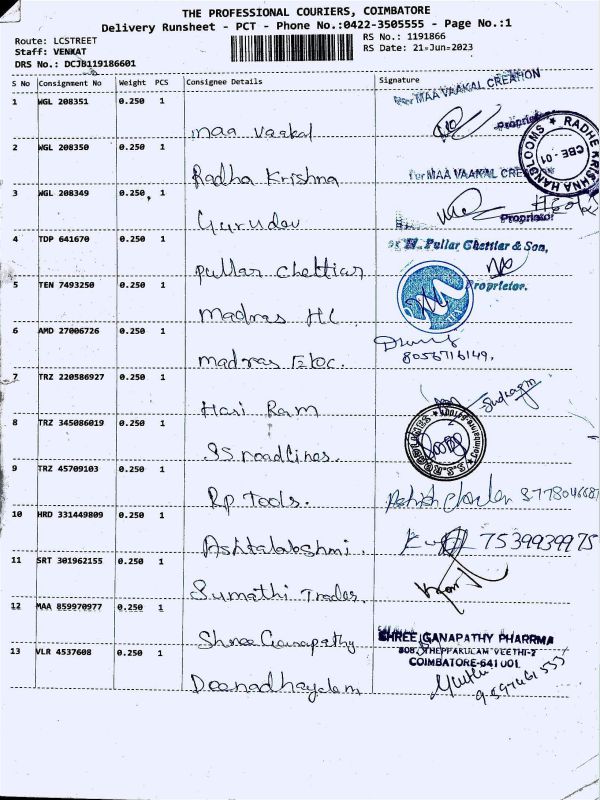 THE PROFESSIONAL COURIERS, COIMBATORE
Delivery Runsheet - PCT - Phone No.:0422-3505555 - Page No.:1
Route: LCSTREET
Staff: VENKAT
DRS No.: DCJB119186601
RS No.: 1191866
RS Date: 21-Jun-2023
S No Consignment No Weight PCS Consignee Details Signature
1 WGL 208351 0.250 1 maa vaakal
For MAA VAAKAL CREATION
Proprietor
2 WGL 208350 0.250 1 Radha Krishna
RADHE KRISHNA HANDLOOMS ★ CBE - 01
3 WGL 208349 0.250 1 Gurudev
For MAA VAAKAL CREATION
Proprietor
4 TDP 641670 0.250 1 pullar chettiar
Pullar Chettiar & Son,
Proprietor.
5 TEN 7493250 0.250 1 madras HC
6 AMD 27006726 0.250 1 madras Eloc.
8056716149,
7 TRZ 220586927 0.250 1 Hari Ram
8 TRZ 345086019 0.250 1 SS roadlines.
9 TRZ 45709103 0.250 1 Rp Tools.
10 HRD 331449809 0.250 1 Ashtalakshmi.
7539939975
11 SRT 301962155 0.250 1 Sumathi Trades.
12 MAA 859970977 0.250 1 Shree Ganapathy
SHREE GANAPATHY PHARRMA
808, THEPPAKULAM VEETHI-2
COIMBATORE-641 001
13 VLR 4537608 0.250 1 Deenadhayalam